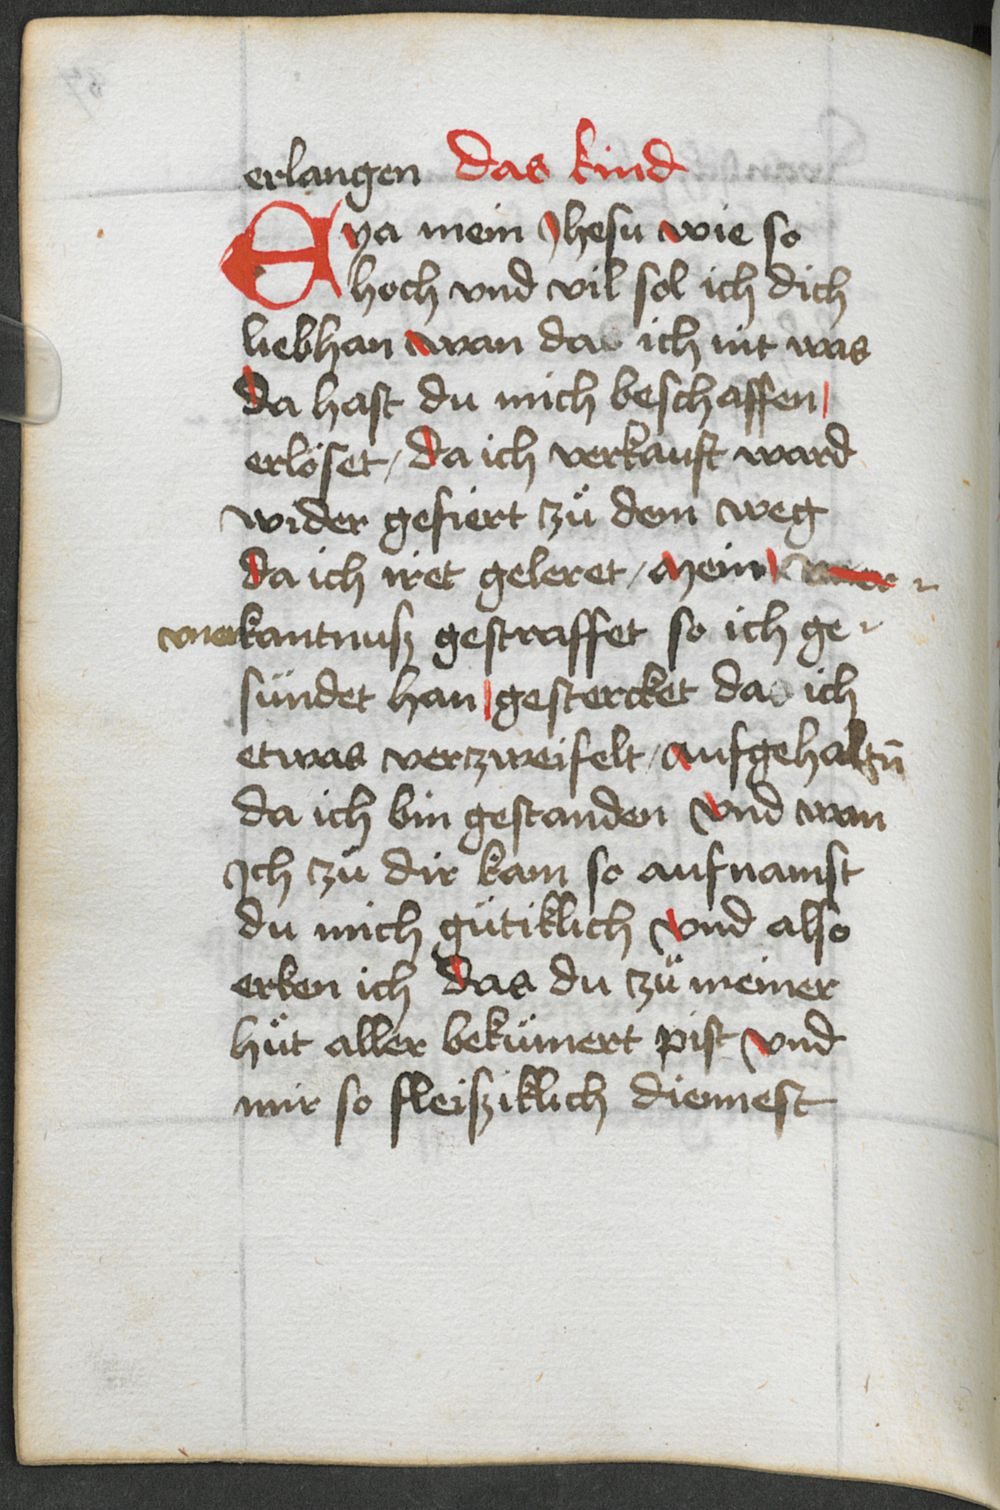 erlangen das kind
Eya mein Jhesu wie so
hoch vnd vil sol ich dich
liebhan wan da ich nit was
da hast du mich beschaffen
erlöset / da ich verkauft ward
wider gefiert zů dem weg
da ich iret geleret / mein
vnerkantnusz gestraffet so ich ge
sündet han gestercket da ich
etwas verzweifelt / aufgehaltn̄
da ich bin gestanden vnd wan
Jch zů dir kam so aufnamst
du mich gütiklich vnd also
erken ich das du zů meiner
hůt aller bekümert pist vnd
mir so fleisziklich diennest